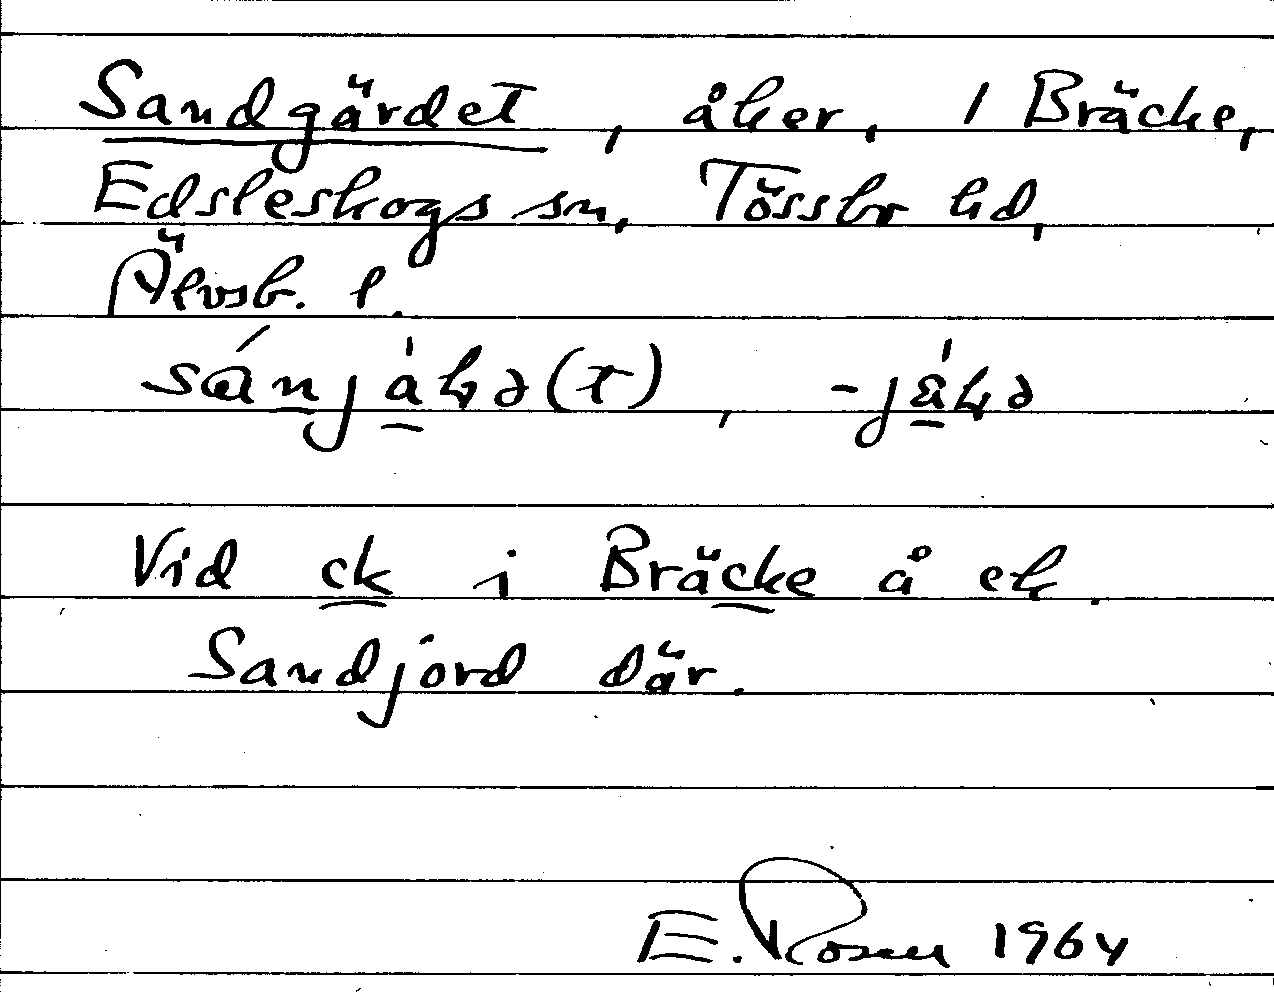 Sandgärdet, åker, 1 Bräcke,
Edsleskogs sn, Tössbo hd,
Älvsb. l.
Vid ck i Bräcke å ek.
Sandjord där.
E. Rosen 1964